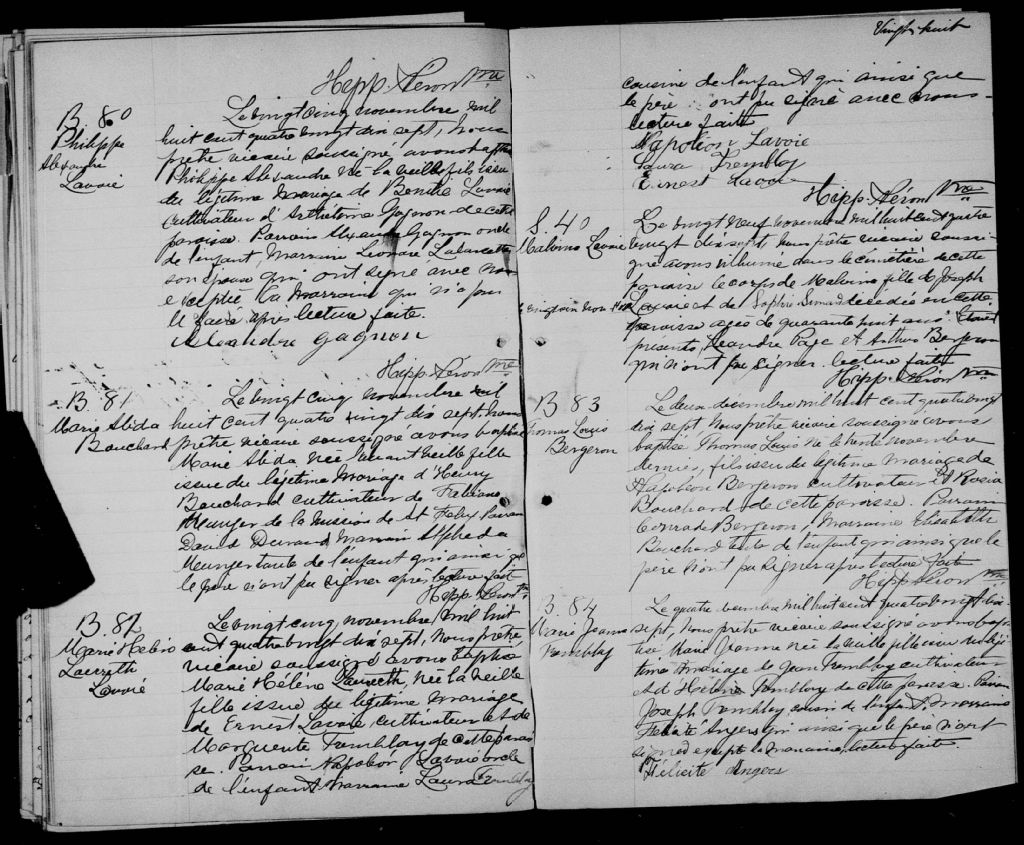 Hipp. Séron Vre
B. 80
Philippe
Alexandre
Lavoie
Le vingt cinq novembre mil
huit cent quatre vingt dix sept, nous
prêtre vicaire soussigné avons baptisé
Philippe Alexandre né la veille fils issu
du légitime mariage de Lavoie
cultivateur et d' Gagnon de cette
paroisse. Parrain Alexandre Gagnon oncle
de l'enfant Marraine Léonore
son épouse qui ont signé avec nous
excepté la marraine qui n'a pu
le faire après lecture faite.
Alexandre Gagnon
Hipp. Séron Vre
B. 81
Marie Alida
Bouchard
Le vingt cinq novembre mil
huit cent quatre vingt dix sept nous
prêtre vicaire soussigné avons baptisé
Marie Alida née avant veille fille
issue du légitime mariage d'Henry
Bouchard cultivateur et de
de la mission de St Felix Parrain
David Marraine Alpheda
tante de l'enfant qui ainsi que
le père n'ont pu signer après lecture faite
Hipp. Séron Vre
B. 82
Marie Hélène
Laureth
Lavoie
Le vingt cinq, novembre, mil huit
cent quatre vingt dix sept, nous prêtre
vicaire soussigné avons baptisé
Marie Hélène Laureth, née la veille
fille issue du légitime mariage
de Ernest Lavoie cultivateur et de
Marguerite Tremblay de cette parois
se. Parrain Napoleon Lavoie oncle
de l'enfant Marraine Laura Tremblay
Vingt huit
cousine de l'enfant qui ainsi que
le père ont pu signé avec nous
lecture faite
Napoléon Lavoie
Laura Tremblay
Ernest Lavoie
Hipp. Séron Vre
S. 40
Malvina Lavoie
Le vingt neuf novembre mil huit cent quatre
vingt dix sept nous prêtre vicaire soussi-
gné avons inhumé dans le cimetière de cette
paroisse le corps de Malvina fille de Joseph
Lavoie et de Sophie décédée en cette
paroisse agée de quarante huit ans. Etaient
présents, Léandre Page et Arthur Bergeron
qui n'ont pu signer. lecture faite
Hipp. Séron Vre
B 83
Thomas Louis
Bergeron
Le deux décembre mil huit cent quatre vingt
dix sept nous prêtre vicaire soussigné avons
baptisé Thomas Louis né le trente novembre
dernier, fils issu du légitime mariage de
Napoléon Bergeron cultivateur et Rosia
Bouchard de cette paroisse. Parrain
Conrad Bergeron, Marraine Elisabeth
Bouchard tante de l'enfant qui ainsi que le
père n'ont pu signer après lecture faite
Hipp. Séron Vre
B. 84
Marie Jeanne
Tremblay
Le quatre mil huit cent quatre vingt dix
sept, nous prêtre vicaire soussigné avons bap
tisé Marie Jeanne née la veille fille issue du légi
time mariage de Jean Tremblay cultivateur
et d'Hélène Tremblay de cette paroisse. Parrain
Joseph Tremblay cousin de l'enfant Marraine
Félicité Angers qui ainsi que le père n'ont
signé excepté la marraine, lecture faite.
Félicité Angers